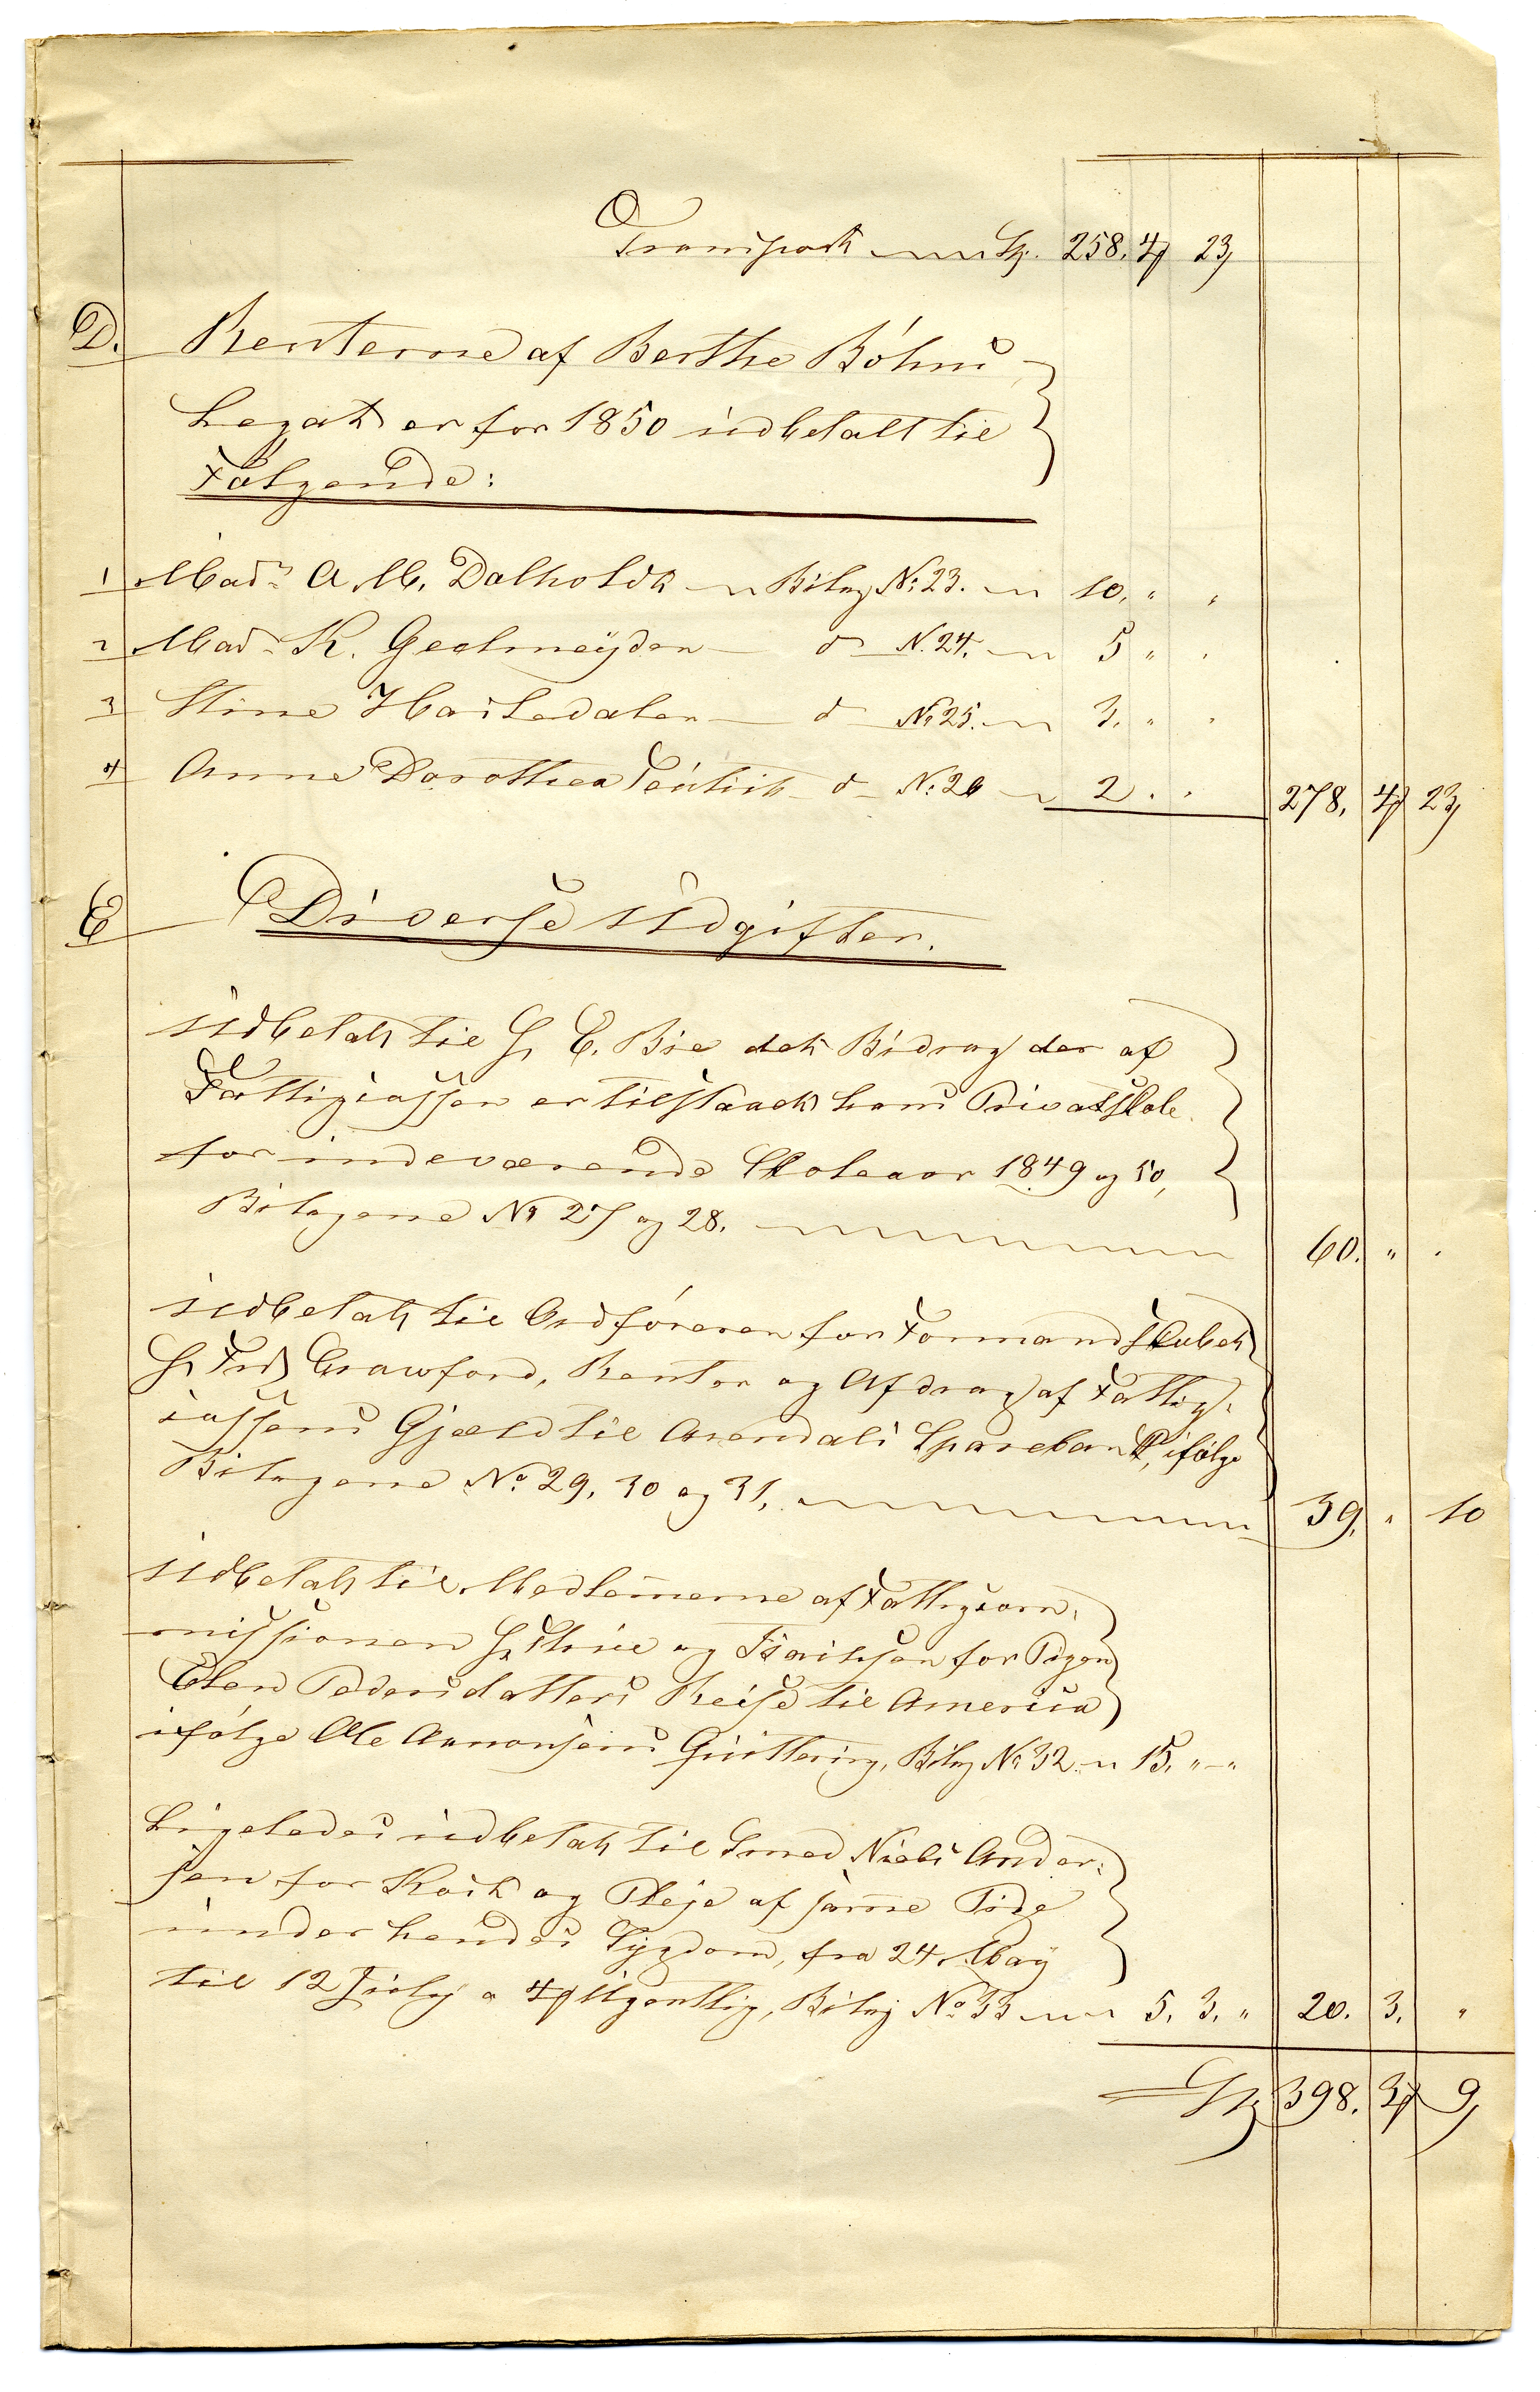 Transport Sp. 258. 4 23
D. Renterne af Berthe Böhms
Legat er for 1850 udbetalt til
Følgende:
1 Madm A. M. Dalholdt Bilag No 23. 10. " "
2 Mad. K. Geelmeÿden do N. 24. 5 " "
3 Stine do No 25. 3. " "
4 Anne Dorothea do No 26 2. "
278. 4 23
E Diverse Udgifter.
Udbetalt til Hr E. Bie det Bidrag der af
Fattigcassen er tilstaaet hans Privatskole
for indeværende Skoleaar 1849 og 50,
Bilagene No 27 og 28. 60. " "
Udbetalt til Ordføreren for Formandskabet
Hr Fred Crawford, Renter og Afdrag af Fattig-
cassens Gjæld til Arendals Sparebank, ifølge
Bilagene No 29, 30 og 31. 39. " 10
Udbetalt til Medlemerne af Fattigcom-
missionen Hr og for Pigen
Elen Pedersdatters Reise til America
ifølge Ole Aanonsens Quittering, Bilag No 32 15. " - "
Ligeledes udbetalt til Smed Niels Ander-
sen for Kost og Pleje af samme Pige
under hendes Sÿgdom, fra 24 Maÿ
til 12 July a 4 Ugentlig, Bilag No 33 5. 3. " 20. 3. "
Sp 398. 3 9